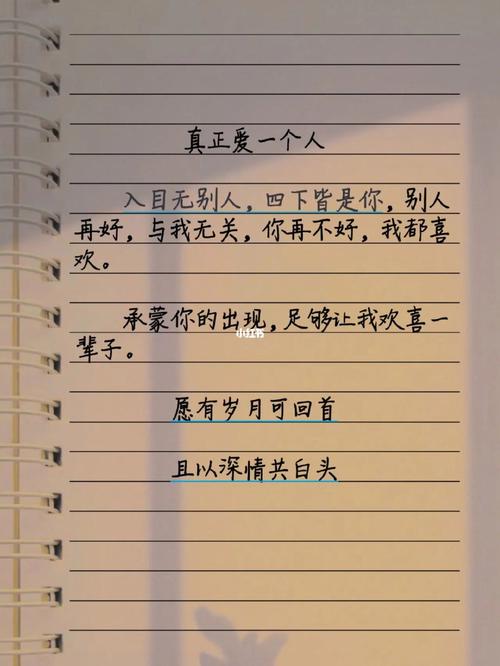 真正爱一个人
入目无别人，四下皆是你，别人
再好，与我无关，你再不好，我都喜
欢。
承蒙你的出现，足够让我欢喜一
小红书
辈子。
愿有岁月可回首
且以深情共白头